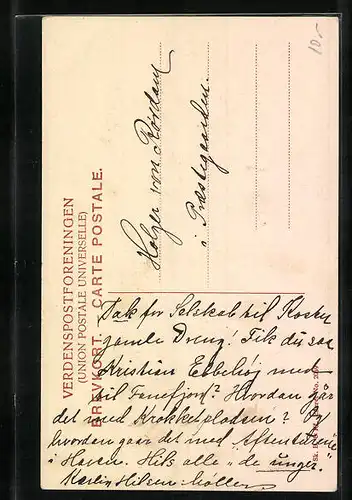 10.-
VERDENSPOSTFORENINGEN
(UNION POSTALE UNIVERSELLE)
BREVKORT. — CARTE POSTALE.
Holger von Rosdam
i Præstegaarden.
Tak for Selskab til Koster
gamle Dreng! Fik du saa
Kristian Ebbehöj med
til Fenefjord? Hvordan gaar
det med Krokketpladsen? Og
hvordan gaar det med "Aftenturene"
i Haven. Hils alle "de unge".
Hilsen Möller